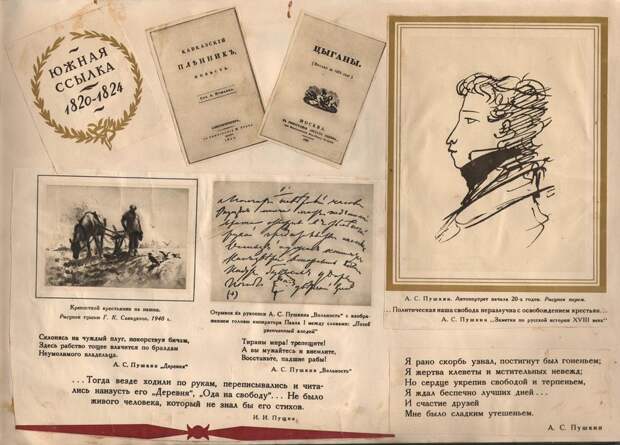 ЮЖНАЯ
ССЫЛКА
1820-1824
КАВКАЗСКІЙ
ПЛѢННИКЪ,
ПОВѢСТЬ.
ЦЫГАНЫ.
МОСКВА.
Крепостной крестьянин на пашне.
Рисунок тушью Г. К. Савицкого, 1946 г.
Склонясь на чуждый плуг, покорствуя бичам,
Здесь рабство тощее влачится по браздам
Неумолимого владельца.
А. С. Пушкин „Деревня"
Отрывок из рукописи А. С. Пушкина „Вольность" с изобра-
жением головы императора Павла I между словами: „Погиб
увенчанный злодей"
Тираны мира! трепещите!
А вы мужайтесь и внемлите,
Восстаньте, падшие рабы!
А. С. Пушкин „Вольность"
...Тогда везде ходили по рукам, переписывались и чита-
лись наизусть его „Деревня", „Ода на свободу"... Не было
живого человека, который не знал бы его стихов.
И. И. Пущин
А. С. Пушкин. Автопортрет начала 20-х годов. Рисунок пером.
...Политическая наша свобода неразлучна с освобождением крестьян...
А. С. Пушкин „Заметки по русской истории XVIII века"
Я рано скорбь узнал, постигнут был гоненьем;
Я жертва клеветы и мстительных невежд;
Но сердце укрепив свободой и терпеньем,
Я ждал беспечно лучших дней...
И счастие друзей
Мне было сладким утешеньем.
А. С. Пушкин